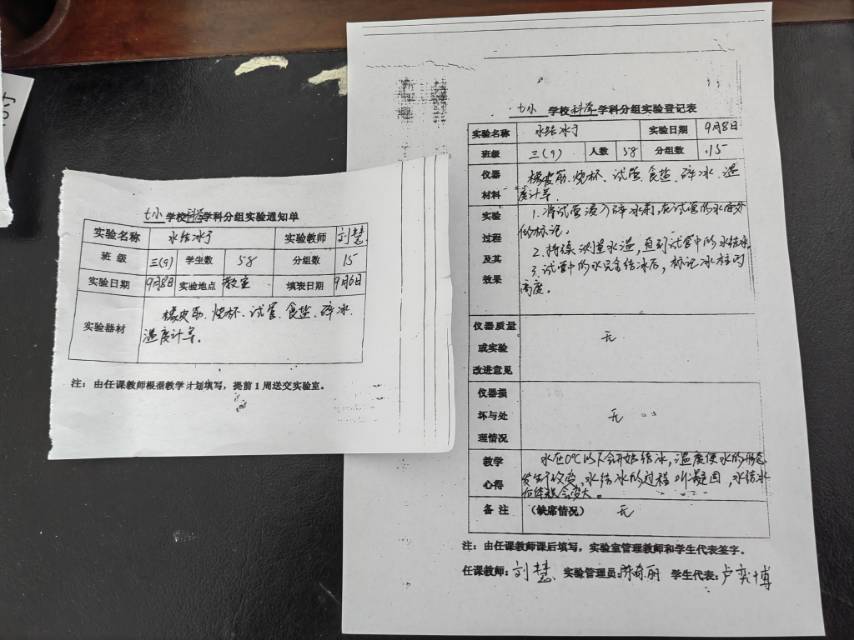 七小 学校科学学科分组实验通知单
实验名称 水结冰了 实验教师 刘慧
班级 三(9) 学生数 58 分组数 15
实验日期 9月8日 实验地点 教室 填表日期 9月6日
实验器材 橡皮筋、烧杯、试管、食盐、碎冰、
温度计等。
注：由任课教师根据教学计划填写，提前1周送交实验室。
七小 学校科学学科分组实验登记表
实验名称 水结冰了 实验日期 9月8日
班级 三(9) 人数 58 分组数 15
仪器
材料
橡皮筋、烧杯、试管、食盐、碎冰、温
度计等
实验
过程
及其
效果
1.将试管浸入碎冰里,在试管的水面
的标记。
2.持续测量水温,直到试管中的水结冰
3.试管中的水完全结冰后,标记冰柱的
高度。
仪器质量
或实验
改进意见
无
仪器损
坏与处
理情况
无
教学
心得
水在0℃以下会开始结冰,温度使水的形态
发生了改变,水结冰的过程叫凝固,水结冰
后体积会变大。
备注 （缺席情况） 无
注：由任课教师课后填写，实验室管理教师和学生代表签字。
任课教师：刘慧 实验管理员：陈 丽 学生代表：卢奕博